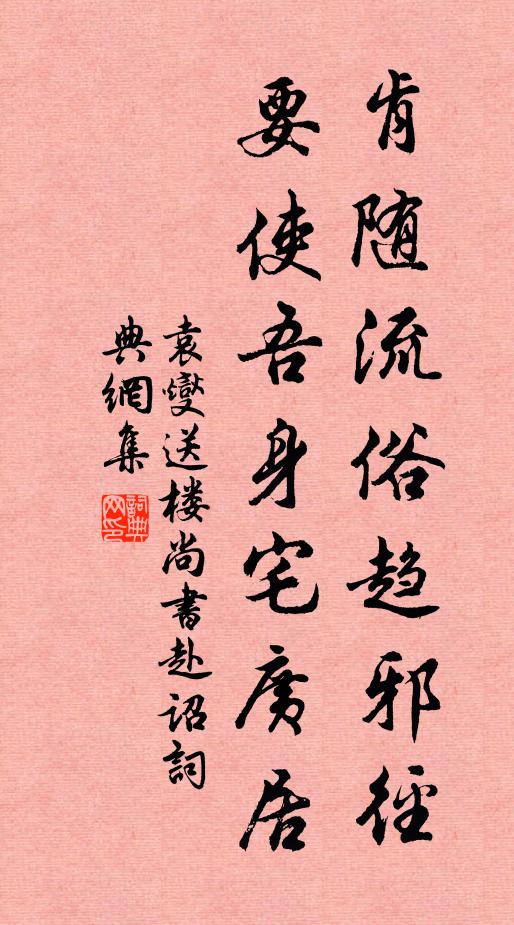 肯随流俗趋邪径
要使吾身宅廣居
袁燮送楼尚書赴诏詞
典網集
詞典网印